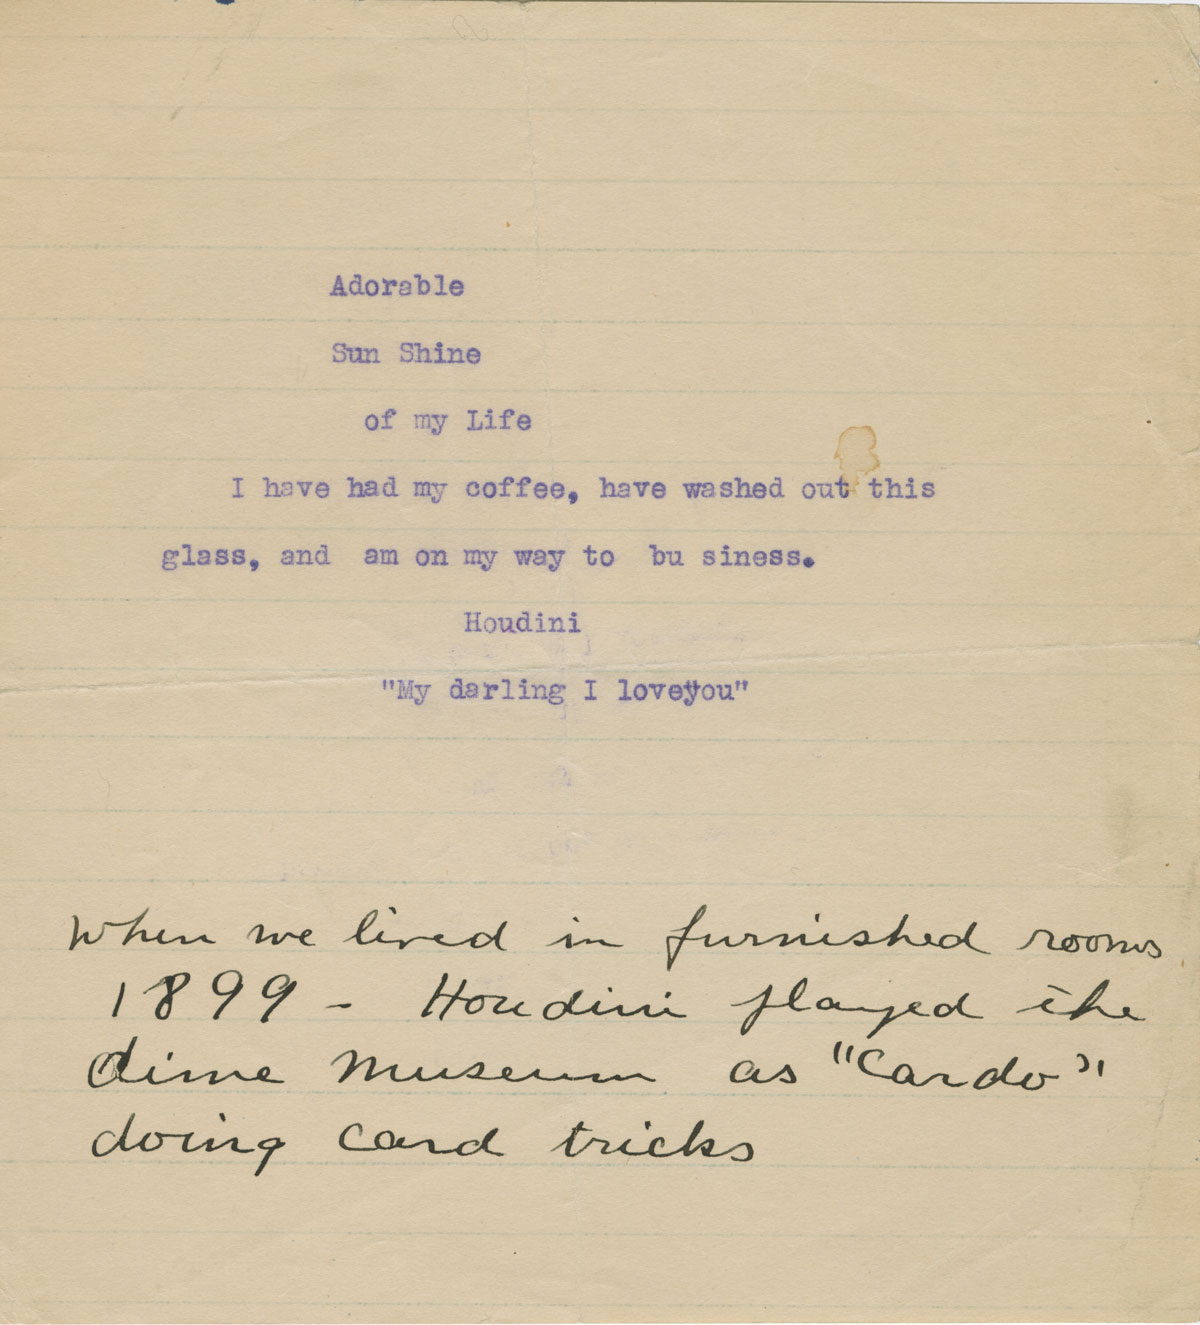 Adorable
Sun Shine
of my Life
I have had my coffee, have washed out this
glass, and am on my way to bu siness.
Houdini
"My darling I loveyou"
When we lived in furnished rooms
1899 - Houdini played the
dime museum as "Cardo"
doing card tricks